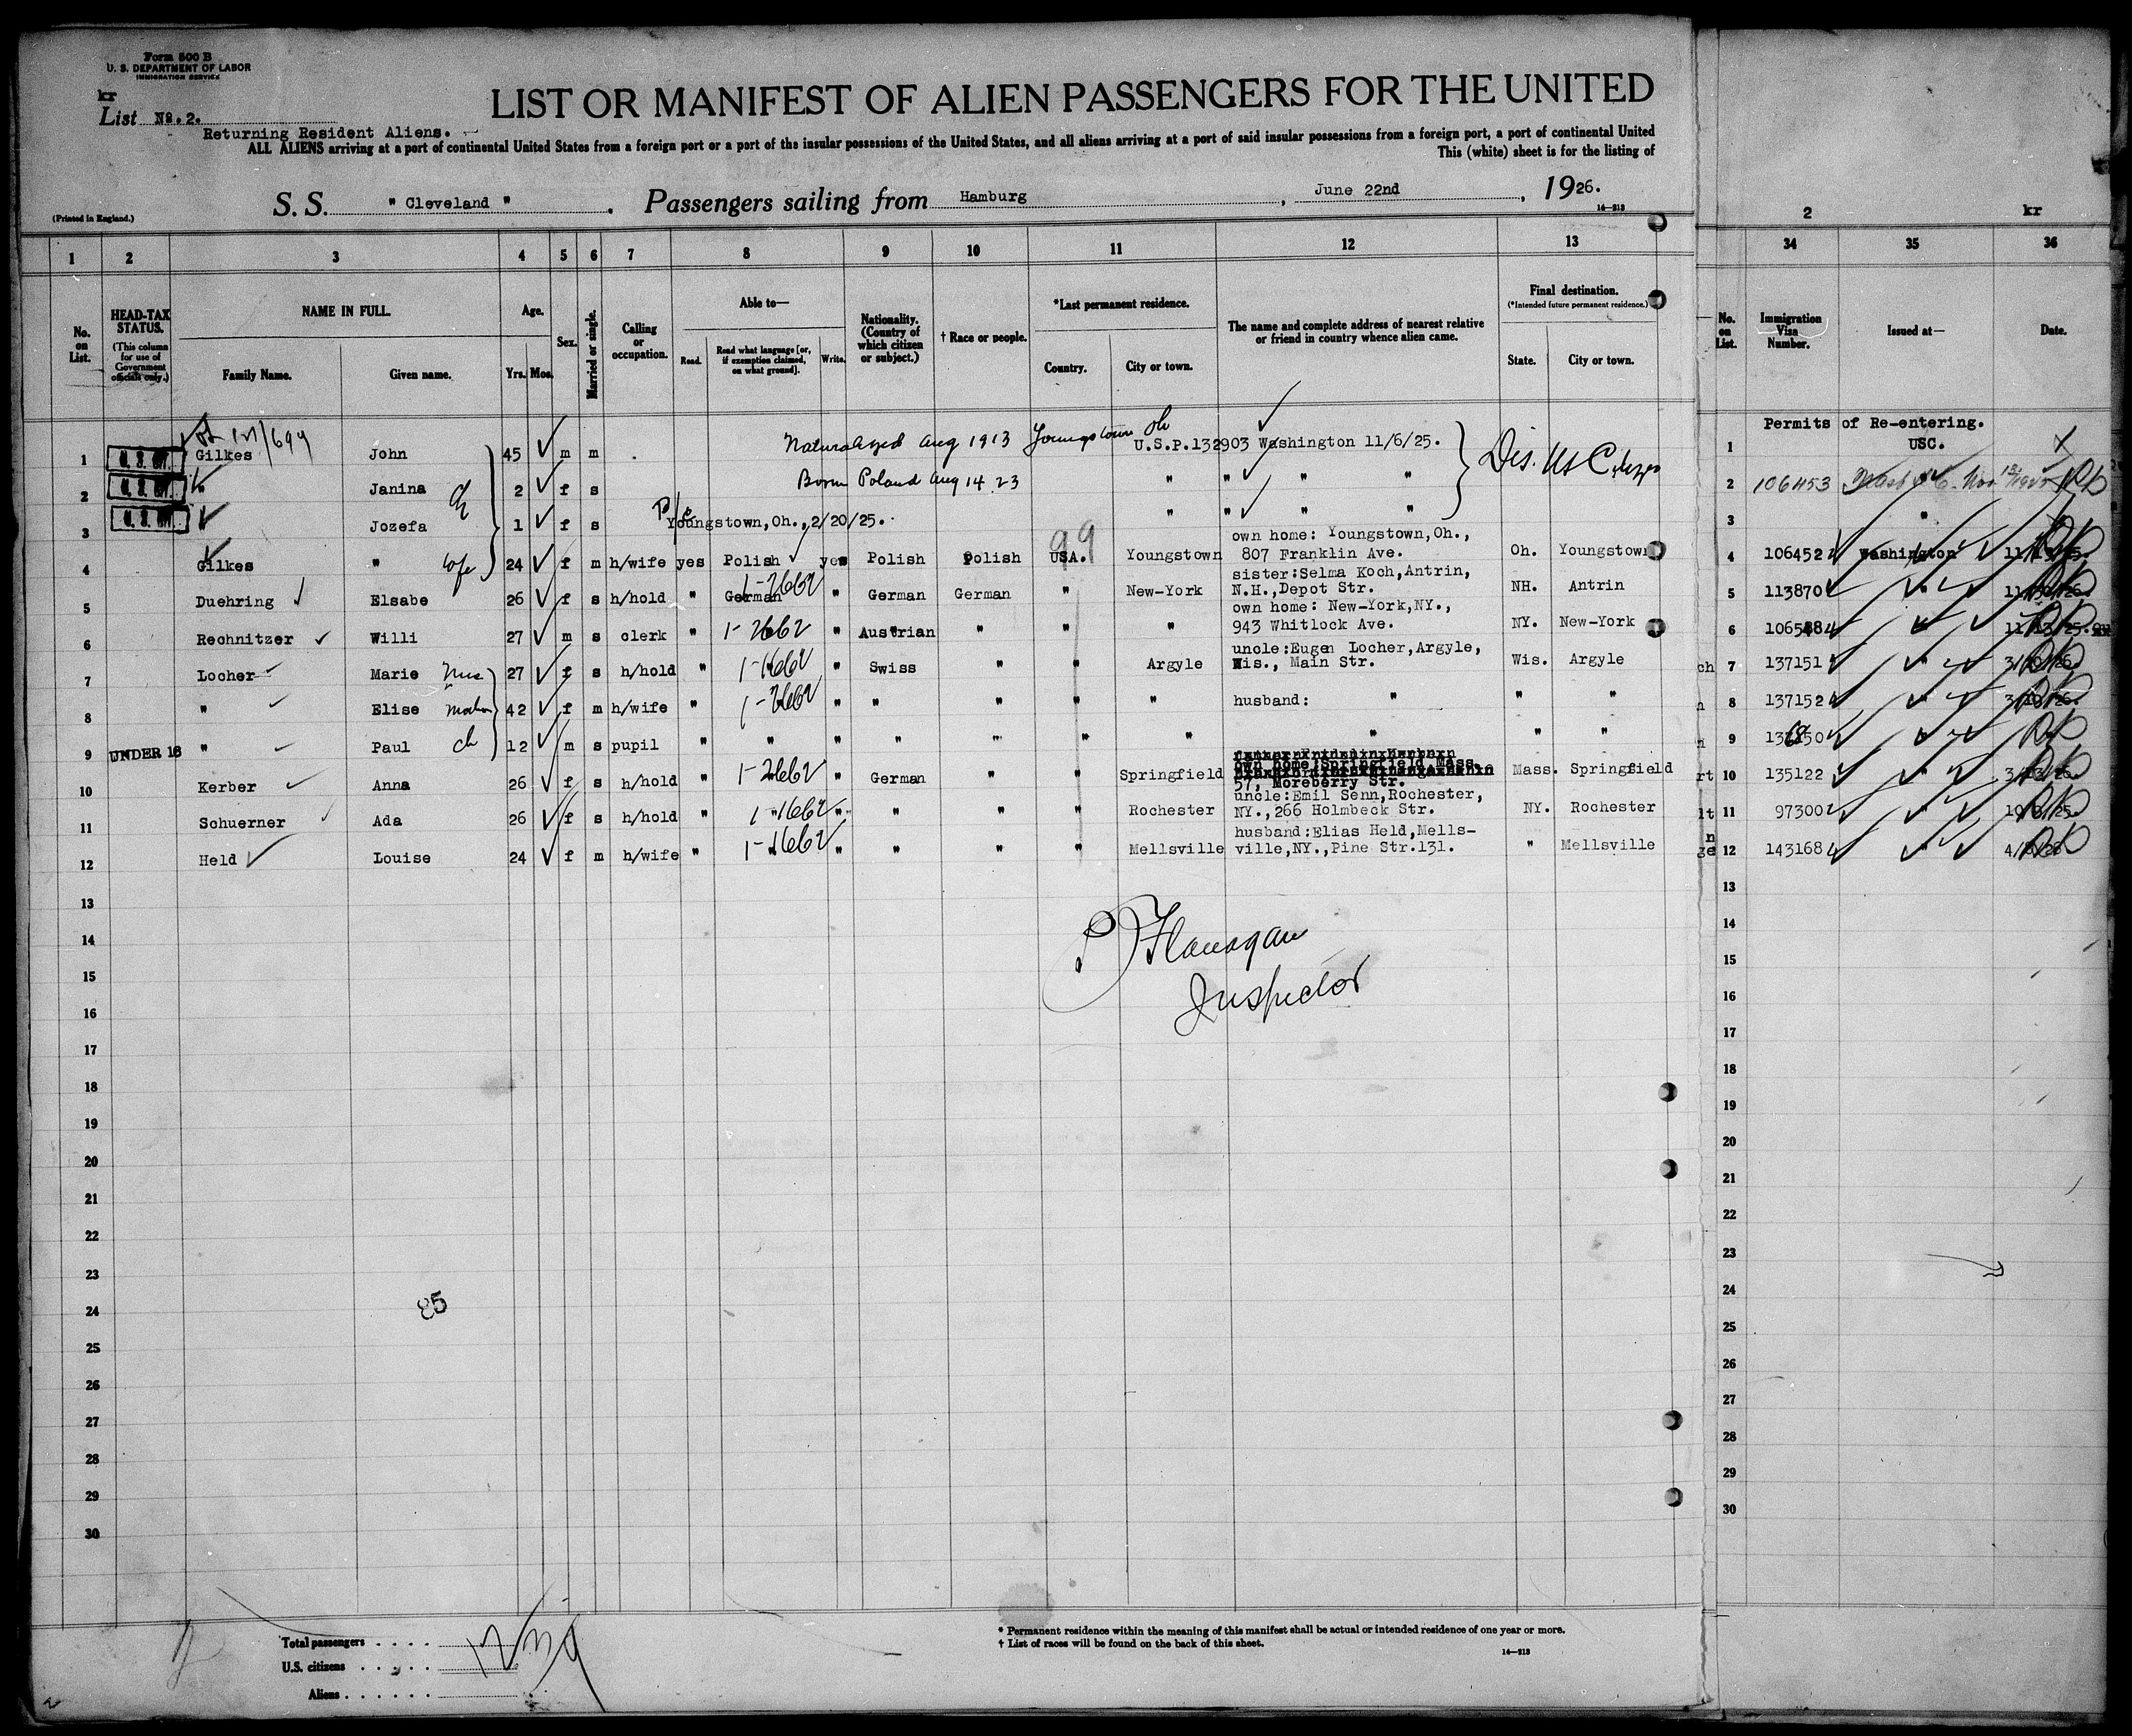 Form 500 B
U. S. DEPARTMENT OF LABOR
IMMIGRATION SERVICE
kr
List No. 2.
Returning Resident Aliens.
LIST OR MANIFEST OF ALIEN PASSENGERS FOR THE UNITED
ALL ALIENS arriving at a port of continental United States from a foreign port or a port of the insular possessions of the United States, and all aliens arriving at a port of said insular possessions from a foreign port, a port of continental United
This (white) sheet is for the listing of
S. S. " Cleveland " . Passengers sailing from Hamburg , June 22nd , 1926.
(Printed in England.)
14—213
2 kr
1 2 3 4 5 6 7 8 9 10 11 12 13 34 35 36
No. on List.
HEAD-TAX STATUS.
(This column for use of Government officials only.)
NAME IN FULL.
Family Name. Given name.
Age.
Yrs. Mos.
Sex.
Married or single.
Calling or occupation.
Able to—
Read. Read what language [or, if exemption claimed, on what ground]. Write.
Nationality. (Country of which citizen or subject.)
† Race or people.
*Last permanent residence.
Country. City or town.
The name and complete address of nearest relative or friend in country whence alien came.
Final destination.
(*Intended future permanent residence.)
State. City or town.
No. on List.
Immigration Visa Number.
Issued at—
Date.
Permits of Re-entering.
1 Gilkes John 45 m m Naturalized Aug 1913 Youngstown Oh U.S.P.132903 Washington 11/6/25. 1 USC.
Dis. US Citizen
2 " Janina ch 2 f s Born Poland Aug 14 23 " " " " 2 106453
3 Jozefa 1 f s Youngstown,Oh.,2/20/25. " " " " 3 "
own home: Youngstown,Oh.,
4 Gilkes " wife 24 f m h/wife yes Polish yes Polish Polish USA. Youngstown 807 Franklin Ave. Oh. Youngstown 4 106452 Washington
99
sister:Selma Koch,Antrin,
5 Duehring Elsabe 26 f s h/hold " German " German German " New-York N.H.,Depot Str. NH. Antrin 5 113870 "
own home: New-York,NY.,
6 Rechnitzer Willi 27 m s clerk " " Austrian " " " 943 Whitlock Ave. NY. New-York 6 "
uncle:Eugen Locher,Argyle,
7 Locher Marie 27 f s h/hold " " Swiss " " Argyle Wis., Main Str. Wis. Argyle 7 137151 "
8 " Elise mother 42 f m h/wife " " " " " " husband: " " " 8 137152 "
9 UNDER 16 " Paul ch 12 m s pupil " " " " " " " " " " 9 "
own home:Springfield Mass.
10 Kerber Anna 26 f s h/hold " " German " " Springfield 57, Moreberry Str. Mass. Springfield 10 135122 "
uncle:Emil Senn,Rochester,
11 Schuerner Ada 26 f s h/hold " " " " " Rochester NY.,266 Holmbeck Str. NY. Rochester 11 97300 "
husband:Elias Held,Mells-
12 Held Louise 24 f m h/wife " " " " " Mellsville ville,NY.,Pine Str.131. " Mellsville 12 143168 "
13 13
14 14
15 15
16 16
17 17
18 18
19 19
20 20
21 21
22 22
23 23
24 24
25 25
26 26
27 27
28 28
29 29
30 30
Flanagan
Inspector
85
Total passengers . . . .
U.S. citizens . . . . .
Aliens . . . . . .
* Permanent residence within the meaning of this manifest shall be actual or intended residence of one year or more.
† List of races will be found on the back of this sheet.
14—213